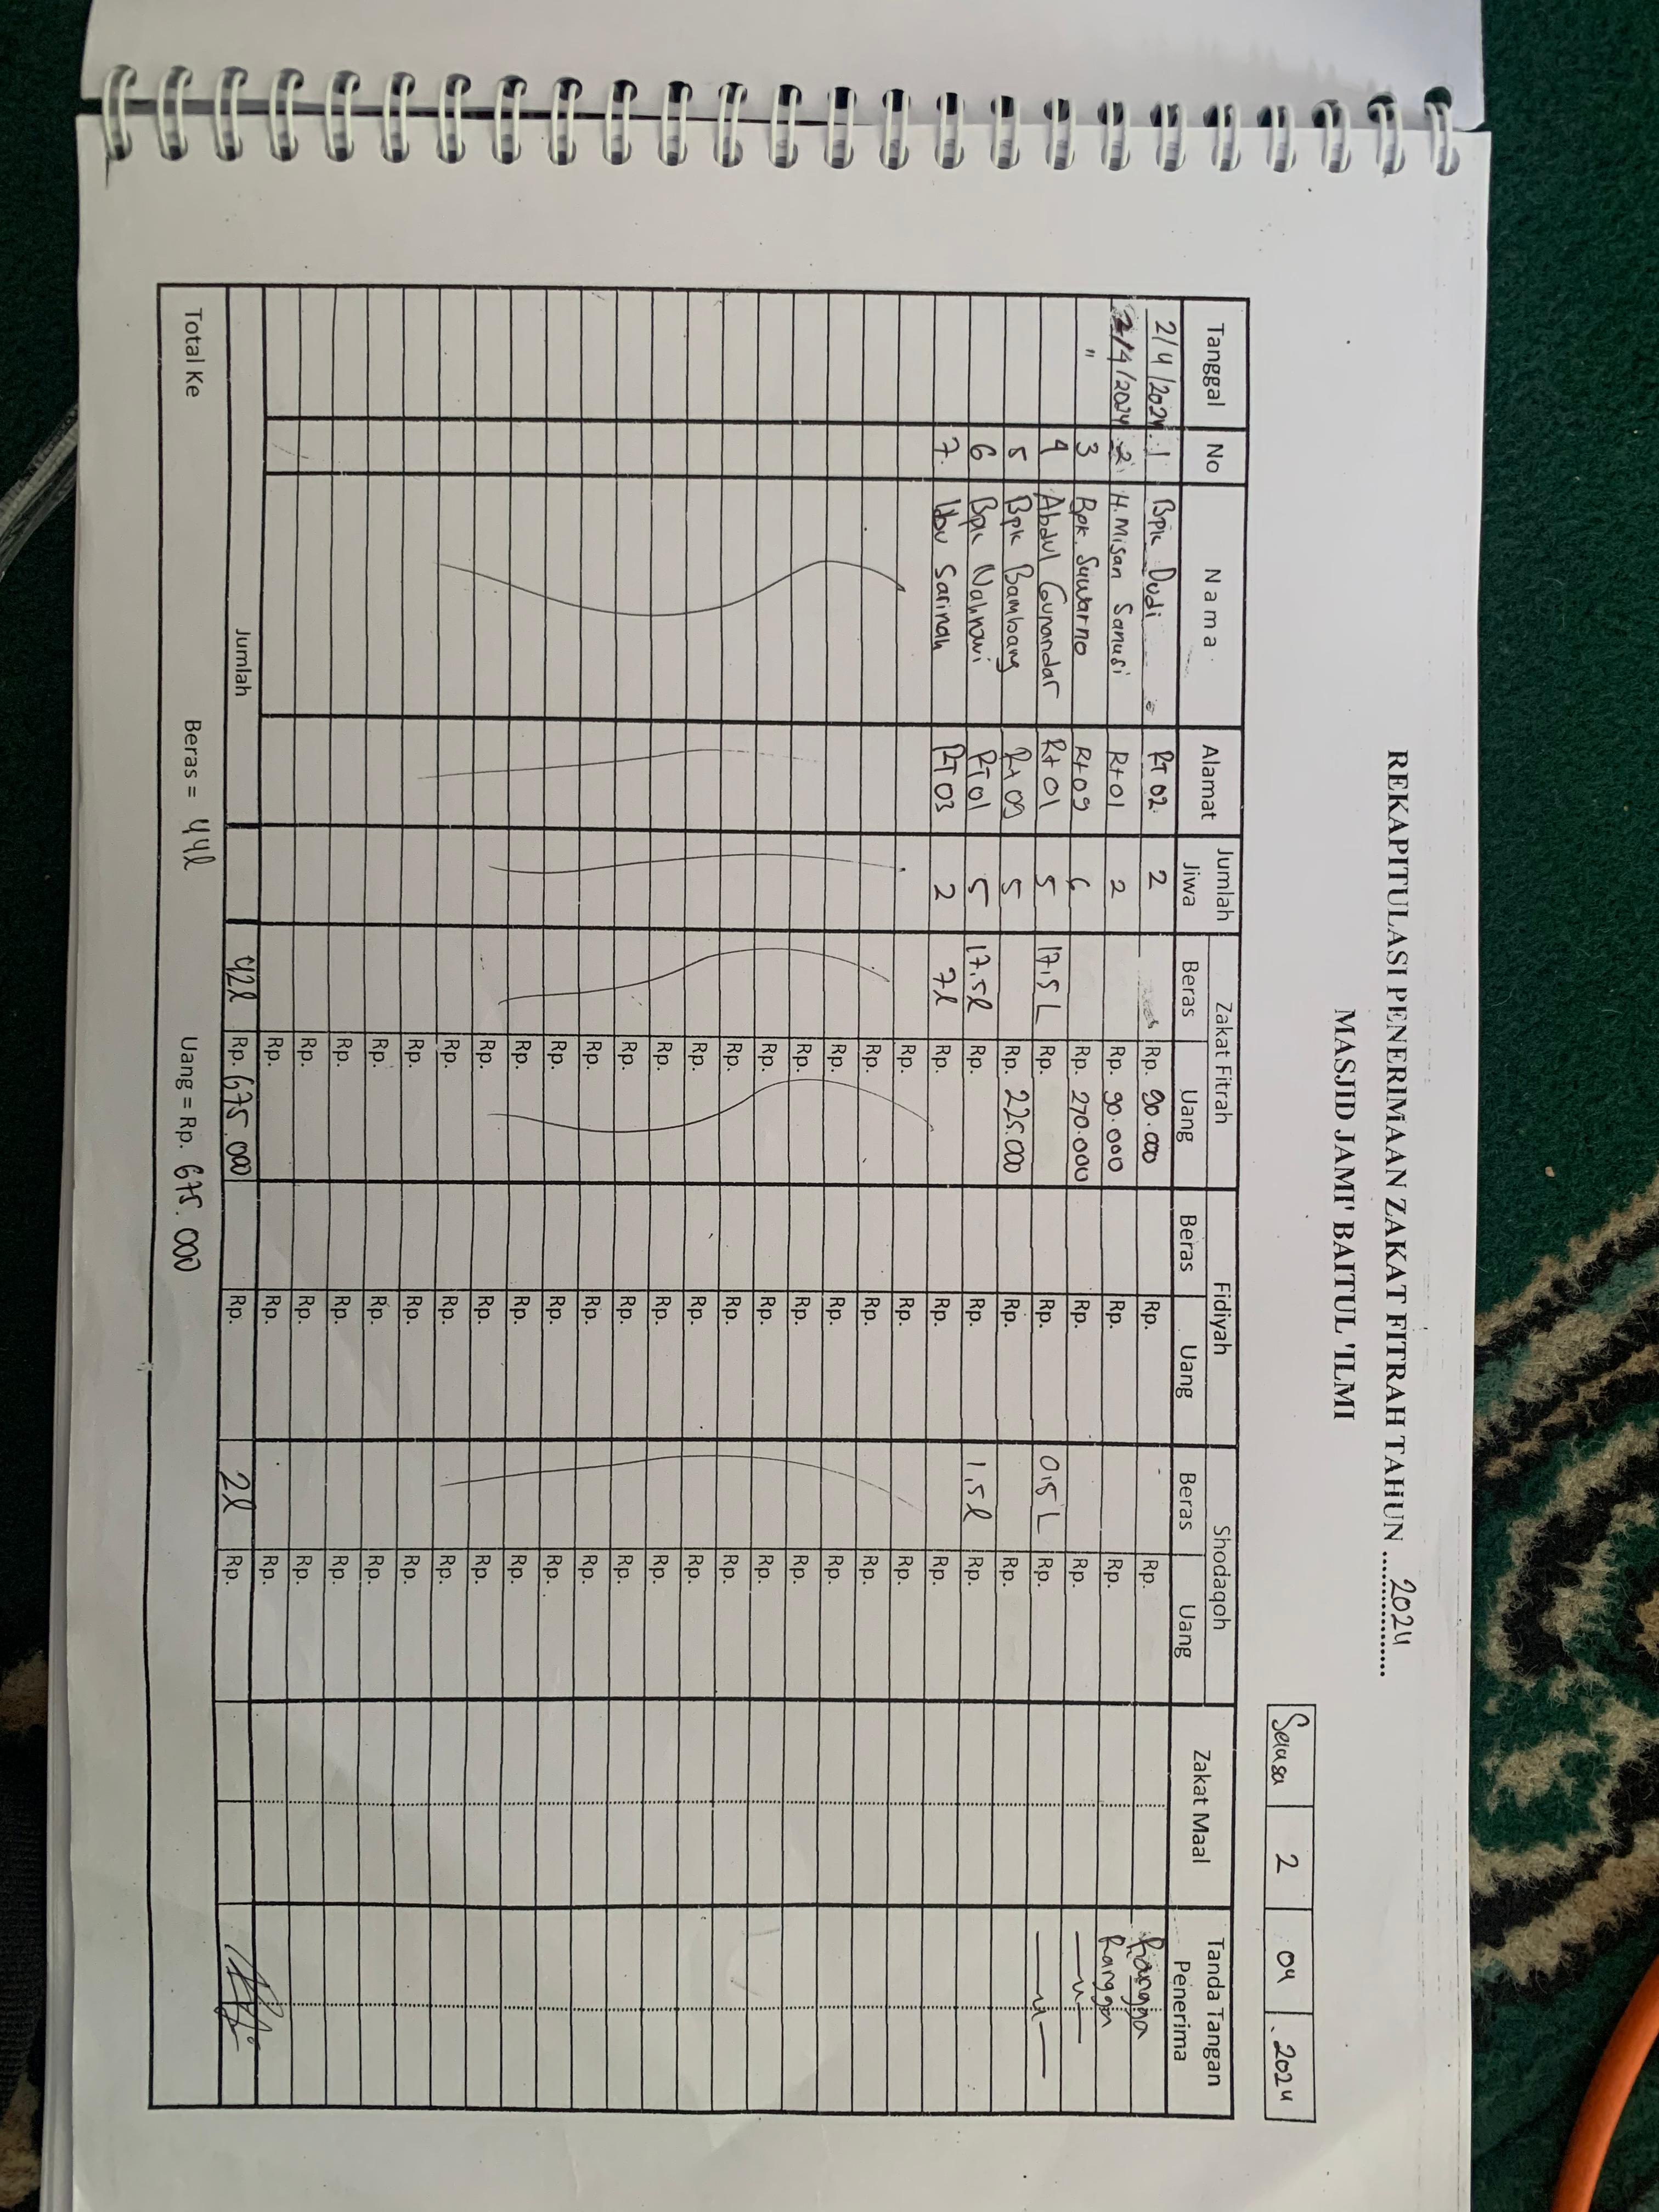 REKAPITULASI PENERIMAAN ZAKAT FITRAH TAHUN 2024
MASJID JAMI' BAITUL 'ILMI
Selasa 2 04 2024
Tanggal No Nama Alamat Jumlah Jiwa Zakat Fitrah Fidiyah Shodaqoh Zakat Maal Tanda Tangan Penerima
Beras Uang Beras Uang Beras Uang
2/4/2024 1 Bpk Dudi RT 02 2 Rp. 90.000 Rp. Rp. Rangga
2/4/2024 2 H. Misan Sanusi Rt 01 2 Rp. 90.000 Rp. Rp. Rangga
" 3 Bpk. Suwarno Rt 09 6 Rp. 270.000 Rp. Rp. —"—
4 Abdul Gunandar Rt 01 5 17,5 L Rp. Rp. 0,5 L Rp. —"—
5 Bpk Bambang Rt 09 5 Rp. 225.000 Rp. Rp.
6 Bpk Nahrowi RT 01 5 17,5 l Rp. Rp. 1,5 l Rp.
7. Ibu Sarinah RT 03 2 7 l Rp. Rp. Rp.
Rp. Rp. Rp.
Rp. Rp. Rp.
Rp. Rp. Rp.
Rp. Rp. Rp.
Rp. Rp. Rp.
Rp. Rp. Rp.
Rp. Rp. Rp.
Rp. Rp. Rp.
Rp. Rp. Rp.
Rp. Rp. Rp.
Rp. Rp. Rp.
Rp. Rp. Rp.
Rp. Rp. Rp.
Rp. Rp. Rp.
Rp. Rp. Rp.
Rp. Rp. Rp.
Rp. Rp. Rp.
Rp. Rp. Rp.
Rp. Rp. Rp.
Jumlah 42 l Rp. 675.000 Rp. 2 l Rp.
Total Ke Beras = 44 l Uang = Rp. 675.000